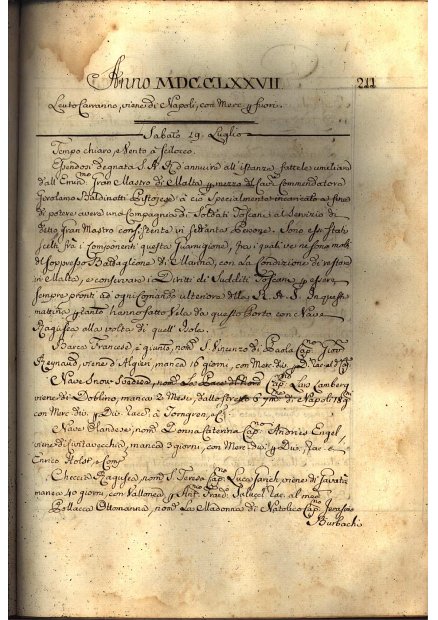 Anno MDCCLXXVII 211
Leuto Carrarino, viene di Napoli, con Merc. p fuori.
Sabato 19. Luglio
Tempo chiaro, e Vento à Scilocco.
Essendosi degnata S. A. R. d'annuire all'istanza fattele umiliare
dall'Emin.mo Gran Mastro di Malta p mezzo del Cav. Commendatore
Gerolamo Baldinotti Pistojese à ciò Specialmente incaricato a fine
di potere avere una Compagnia di Soldati Toscani al Servizio di
detto Gran Mastro consistente in settanta Persone. Sono essi stati
scelti fra i Componenti questa Guarnigione, fra i quali ve ne sono molti
del Soppresso Battaglione di Marina, con la Condizione di restare
in Malta, e conservare i Diritti di Sudditi Toscani, p essere
sempre pronti ad ogni Comando ulteriore della R. A. S. In questa
mattina p tanto hanno fatto Vela da questo Porto con Nave
Ragusea alla volta di quell'Isola.
Barca Francese è giunta, nom.ta S. Vincenzo di Paola Cap.no
Reynaud, viene d'Algieri, manca 16 giorni, con Merc.
Nave Snou Svedese, nom. La Pace del Nord Cap.no Lars Lamberg
viene di Doblino, manca 2 Mesi, dallo stretto e di Napoli
con Merc. div. p Div. Racc. à Törngren, e C.
Nave Olandese, nom. Donna Caterina Cap.no Andries Engel,
viene di Civitavecchia, manca 3 giorni, con Merc. div. p Div. Rac. e
Enrico Holst, e Comp.
Checcia Ragusea, nom. S. Teresa Cap.no Luca Janek, viene di
manca 40 giorni, con Vallonea p Rac. al med.mo
Pollacca Ottomanna, nom. La Madonna di Natolico Cap.no
Burbachi